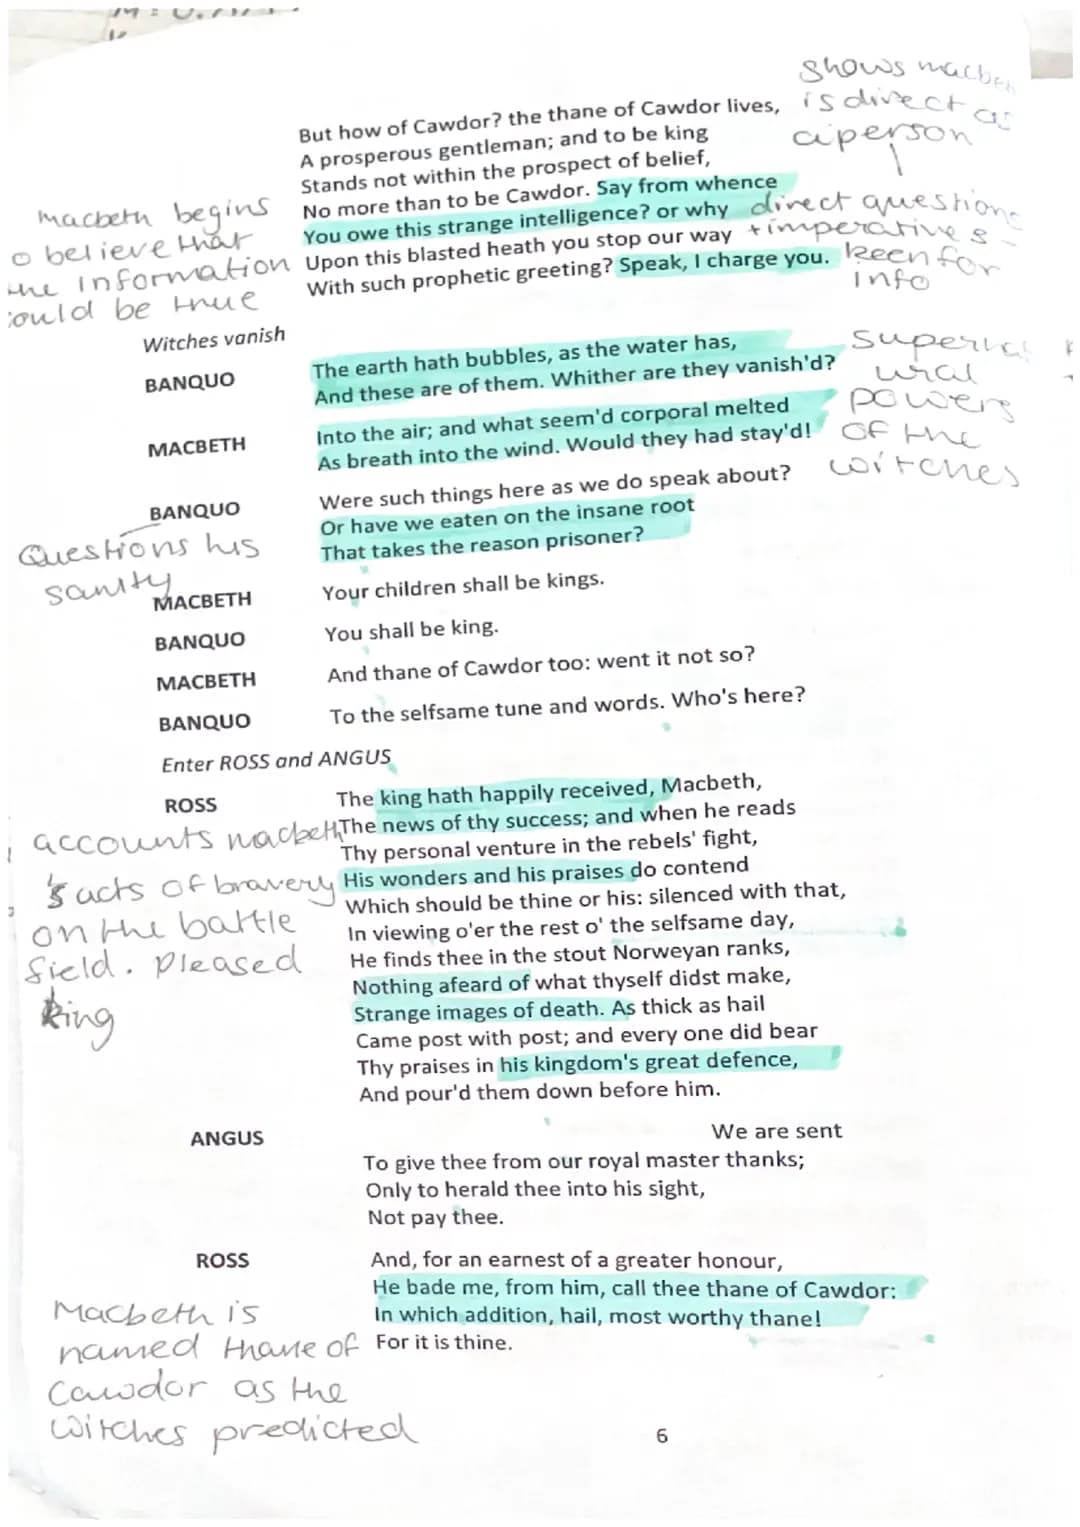 shows macbeth
is direct as
a person
But how of Cawdor? the thane of Cawdor lives,
A prosperous gentleman; and to be king
Stands not within the prospect of belief,
No more than to be Cawdor. Say from whence
You owe this strange intelligence? or why
Upon this blasted heath you stop our way
With such prophetic greeting? Speak, I charge you.
macbeth begins
o believe that
the information
could be true
direct questions
+ imperatives -
keen for
info
Witches vanish
BANQUO
The earth hath bubbles, as the water has,
And these are of them. Whither are they vanish'd?
MACBETH
Into the air; and what seem'd corporal melted
As breath into the wind. Would they had stay'd!
supernat
ural
powers
of the
witches
BANQUO
Were such things here as we do speak about?
Or have we eaten on the insane root
That takes the reason prisoner?
Questions his
sanity
MACBETH
Your children shall be kings.
BANQUO
You shall be king.
MACBETH
And thane of Cawdor too: went it not so?
BANQUO
To the selfsame tune and words. Who's here?
Enter ROSS and ANGUS
ROSS
The king hath happily received, Macbeth,
The news of thy success; and when he reads
Thy personal venture in the rebels' fight,
His wonders and his praises do contend
Which should be thine or his: silenced with that,
In viewing o'er the rest o' the selfsame day,
He finds thee in the stout Norweyan ranks,
Nothing afeard of what thyself didst make,
Strange images of death. As thick as hail
Came post with post; and every one did bear
Thy praises in his kingdom's great defence,
And pour'd them down before him.
accounts macbeth
's acts of bravery
on the battle
field. Pleased
king
ANGUS
We are sent
To give thee from our royal master thanks;
Only to herald thee into his sight,
Not pay thee.
ROSS
And, for an earnest of a greater honour,
He bade me, from him, call thee thane of Cawdor:
In which addition, hail, most worthy thane!
For it is thine.
Macbeth is
named thane of
Cawdor as the
witches predicted
6